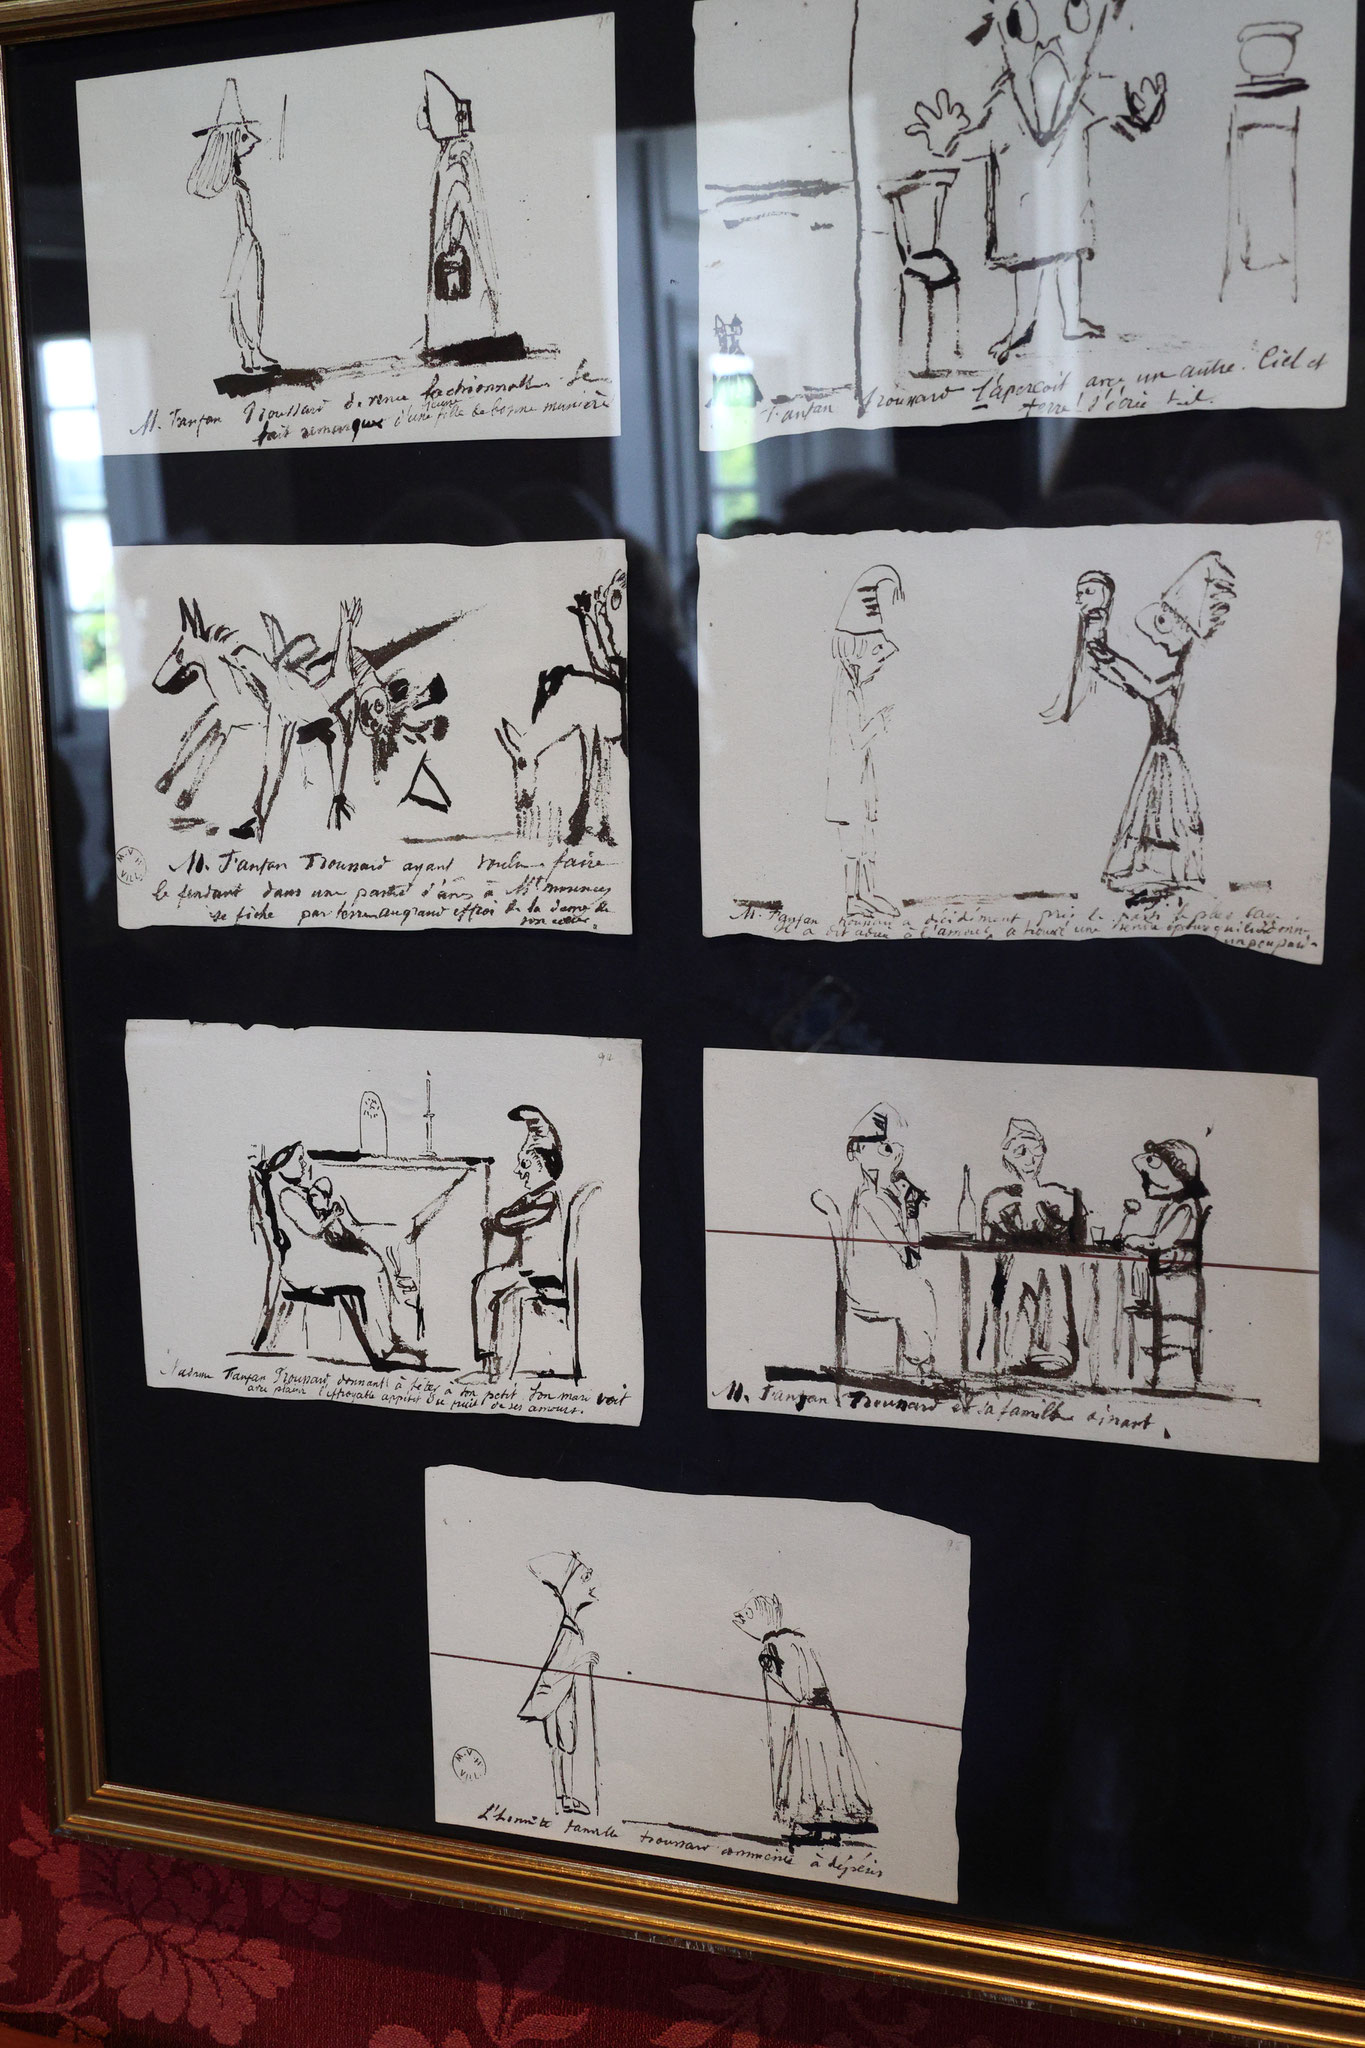 M. Tanfan Troussard devenu factionnaire se
fait remarquer d'une jeune fille de bonne
Tanfan Troussard l'aperçoit avec un autre. Ciel et
terre! s'écrie t-il.
M. Tanfan Troussard ayant voulu faire
le fendant dans une partie d'ânes à Mtmorency
se fiche par terre au grand effroi de la dame de
son cœur.
93
M. Tanfan Troussard a décidément pris le parti le plus sage
Il a dit adieu à l'amour, a trouvé une
un peu
94
Madame Tanfan Troussard donnant à têter à son petit son mari voit
avec plaisir l'effroyable appétit du fruit de ses amours.
M. Tanfan Troussard et sa famille dinant.
M.V.H
VILL.
L'honnête famille troussard commence à dépérir
M.V.H
VILL.